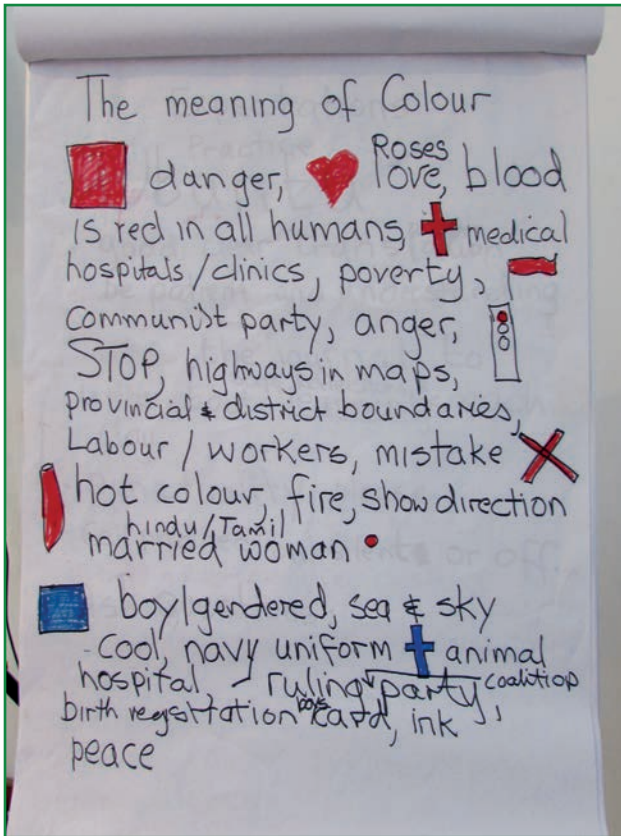 The meaning of Colour
danger, Roses love, blood
is red in all humans, medical
hospitals/clinics, poverty,
communist party, anger,
STOP, highways in maps,
provincial & district boundaries,
Labour / workers, mistake
hot colour, fire, show direction
hindu/Tamil
married woman
boy/gendered, sea & sky
cool, navy uniform animal
hospital, ruling party, coalition
birth regsttation boys card, ink
peace